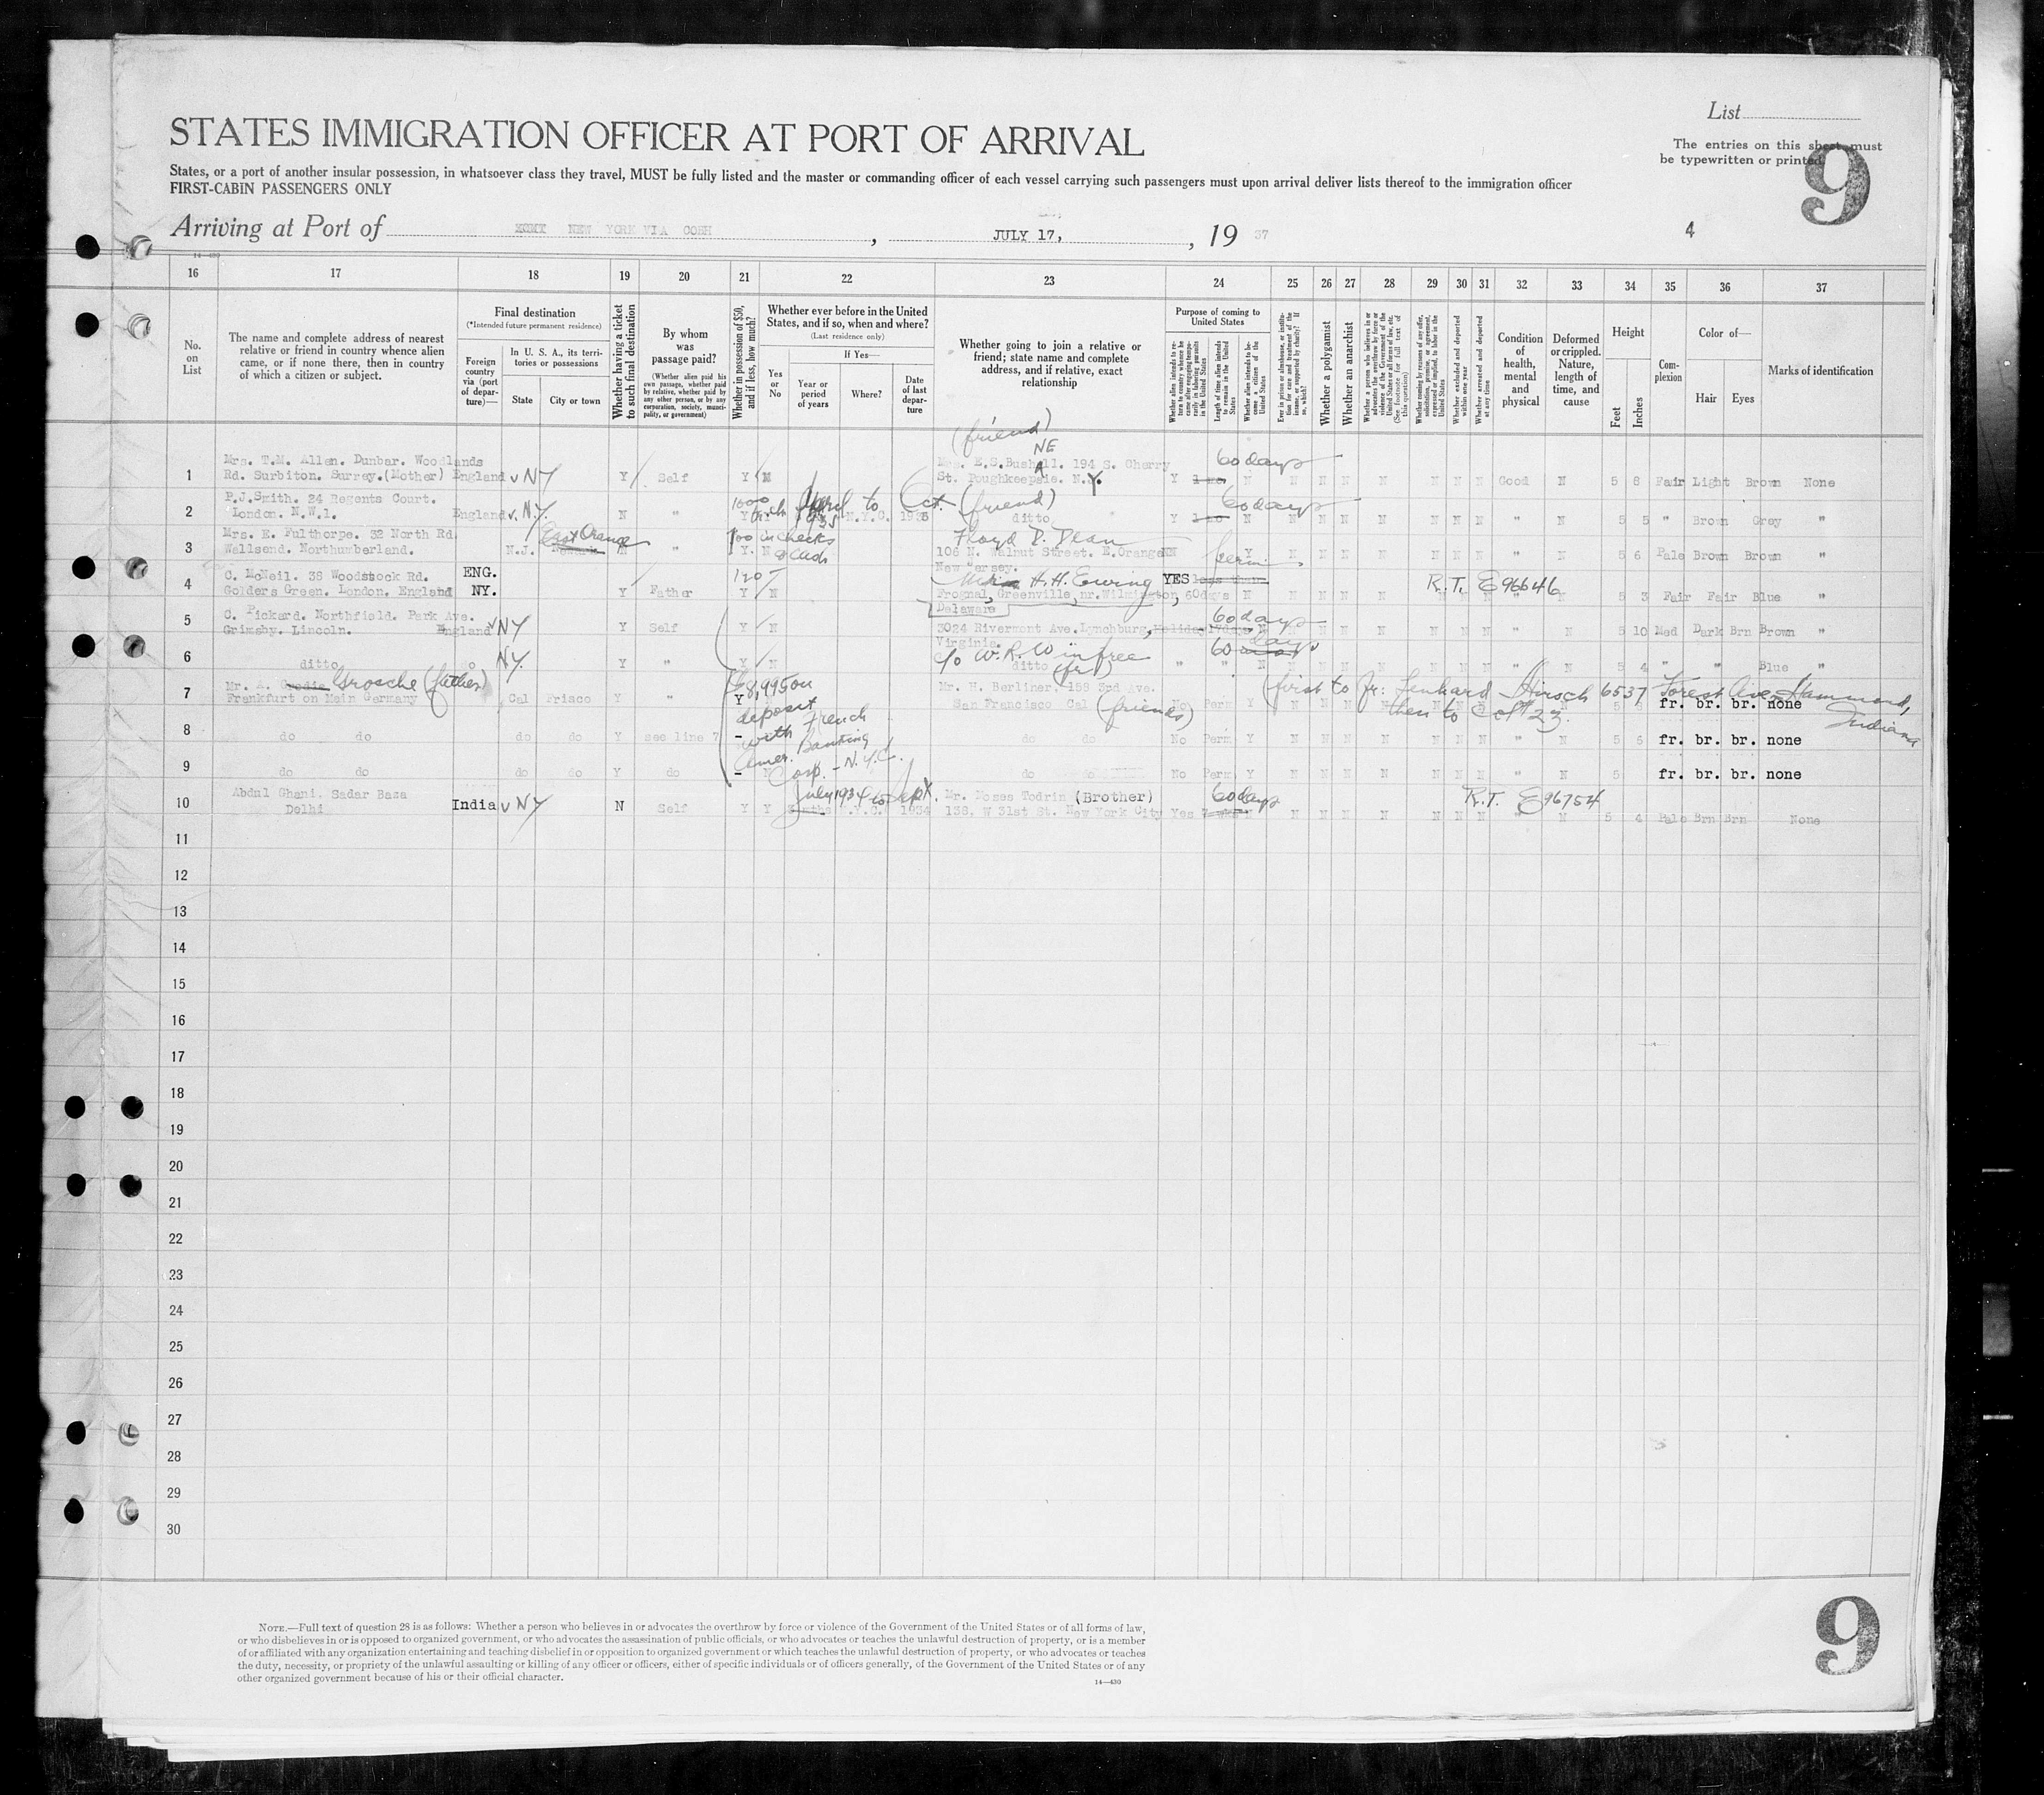 List
The entries on this sheet must
be typewritten or printed.
9
STATES IMMIGRATION OFFICER AT PORT OF ARRIVAL
States, or a port of another insular possession, in whatsoever class they travel, MUST be fully listed and the master or commanding officer of each vessel carrying such passengers must upon arrival deliver lists thereof to the immigration officer
FIRST-CABIN PASSENGERS ONLY
Arriving at Port of NEW YORK VIA COBH, JULY 17, 1937
4
16 17 18 19 20 21 22 23 24 25 26 27 28 29 30 31 32 33 34 35 36 37
No. on List
The name and complete address of nearest relative or friend in country whence alien came, or if none there, then in country of which a citizen or subject.
Final destination
(*Intended future permanent residence)
Foreign country via (port of departure)—
In U. S. A., its territories or possessions
State
City or town
Whether having a ticket to such final destination
By whom was passage paid?
(Whether alien paid his own passage, whether paid by relative, whether paid by any other person, or by any corporation, society, municipality, or government)
Whether in possession of $50, and if less, how much?
Whether ever before in the United States, and if so, when and where?
(Last residence only)
Yes or No
If Yes—
Year or period of years
Where?
Date of last departure
Whether going to join a relative or friend; state name and complete address, and if relative, exact relationship
Purpose of coming to United States
Whether alien intends to return to country whence he came after engaging temporarily in laboring pursuits in the United States
Length of time alien intends to remain in the United States
Whether alien intends to become a citizen of the United States
Ever in prison or almshouse, or institution for care and treatment of the insane, or supported by charity? If so, which?
Whether a polygamist
Whether an anarchist
Whether a person who believes in or advocates the overthrow by force or violence of the Government of the United States or all forms of law, etc. (See footnote for full text of this question)
Whether coming by reasons of any offer, solicitation, promise, or agreement, expressed or implied, to labor in the United States
Whether excluded and deported within one year
Whether arrested and deported at any time
Condition of health, mental and physical
Deformed or crippled. Nature, length of time, and cause
Height
Feet
Inches
Complexion
Color of—
Hair
Eyes
Marks of identification
(friend)
NE
1 Mrs. T.M. Allen. Dunbar. Woodlands E.S.Bushell. 194 S. Cherry 60 days
Rd. Surbiton. Surrey.(Mother) England v NY Y Self Y N St. Poughkeepsie. N.Y. Y N N N N N N N N Good N 5 8 Fair Light Brown None
2 P.J.Smith. 24 Regents Court. 1000 April to Oct. (friend) 60 days
London. N.W.1. England v. N.Y. N " Y Y 1935 N.Y.C. 1935 ditto Y N N N N N N N N " N 5 5 " Brown Grey "
3 Mrs. E. Fulthorpe. 32 North Rd. East Orange 100 in checks & cash Floyd D. Dean
Wallsend. Northumberland. N.J. Newark N " Y. N 106 N. Walnut Street. E.Orange N Perm Y N N N N N N N " N 5 6 Pale Brown Brown "
New Jersey.
4 C. McNeil. 38 Woodstock Rd. ENG. 120- H. H. Ewing YES R.T. E 96646
Golders Green. London. England NY. Y Father Y N Frognal, Greenville, nr. Wilmington, 60days N N N N N N N " N 5 3 Fair Fair Blue "
Delaware
5 C. Pickard. Northfield. Park Ave. 60 days
Grimsby. Lincoln. England v NY Y Self Y N 3024 Rivermont Ave. Lynchburg, Holiday N N N N N N N N " N 5 10 Med Dark Brn Brown "
Virginia.
6 c/o W. R. Winfree 60 days
ditto do N.Y. Y " Y N ditto (fr) " " N N N N N N N N " N 5 4 " " Blue "
7 Mr. A. Grosche (father) $8,995 on Mr. H. Berliner. 158 3rd Ave. (first to fr: Lenhard Hirsch 6537 Forest Ave, Hammond, Indiana
Frankfurt on Mein Germany Cal Frisco Y " Y San Francisco Cal (friends) No Perm Y N N N N N N N then to Col # 23. fr. br. br. none
deposit with French Amer. Banking Corp. - N.Y.C.
8 do do do do Y see line 7 - do do No Perm Y N N N N N N N " N 5 5 fr. br. br. none
9 do do do do Y do - do do No Perm Y N N N N N N N " N 5 fr. br. br. none
10 Abdul Ghani. Sadar Baza July 1934 to Sept. Mr. Moses Todrin (Brother) 60 days R.T. E 96754
Delhi India v NY N Self Y Y N.Y.C. 1934 138. W 31st St. New York City Yes N N N N N N N N " N 5 4 Pale Brn Brn None
11
12
13
14
15
16
17
18
19
20
21
22
23
24
25
26
27
28
29
30
NOTE.—Full text of question 28 is as follows: Whether a person who believes in or advocates the overthrow by force or violence of the Government of the United States or of all forms of law,
or who disbelieves in or is opposed to organized government, or who advocates the assassination of public officials, or who advocates or teaches the unlawful destruction of property, or is a member
of or affiliated with any organization entertaining and teaching disbelief in or opposition to organized government or which teaches the unlawful destruction of property, or who advocates or teaches
the duty, necessity, or propriety of the unlawful assaulting or killing of any officer or officers, either of specific individuals or of officers generally, of the Government of the United States or of any
other organized government because of his or their official character.
14—430
9